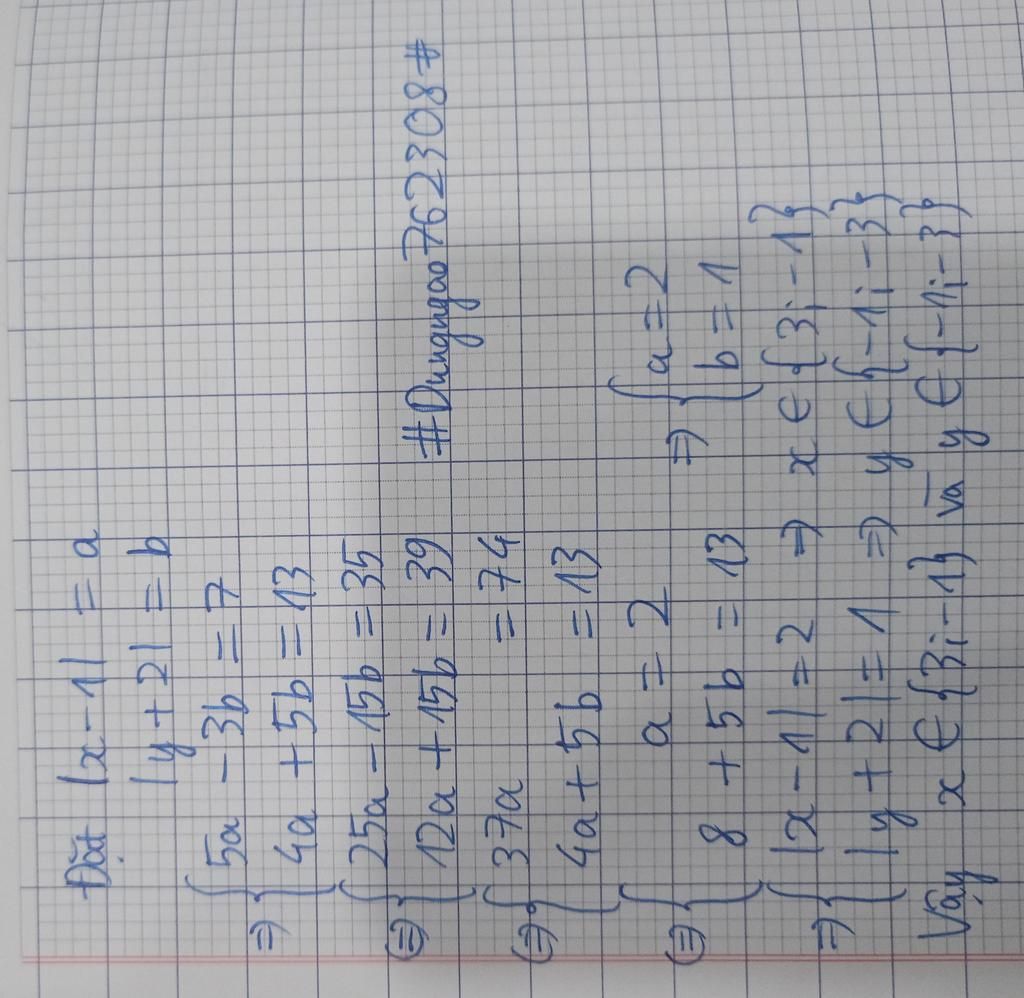 Đặt |x-1| = a
|y+2| = b
=> { 5a - 3b = 7
4a + 5b = 13
(=) { 25a - 15b = 35
12a + 15b = 39
#Dungugao762308#
(=) { 37a = 74
4a + 5b = 13
(=) { a = 2
8 + 5b = 13
=> { a = 2
b = 1
=> { |x-1| = 2 => x ∈ {3;-1}
|y+2| = 1 => y ∈ {-1;-3}
Vậy x ∈ {3;-1} và y ∈ {-1;-3}